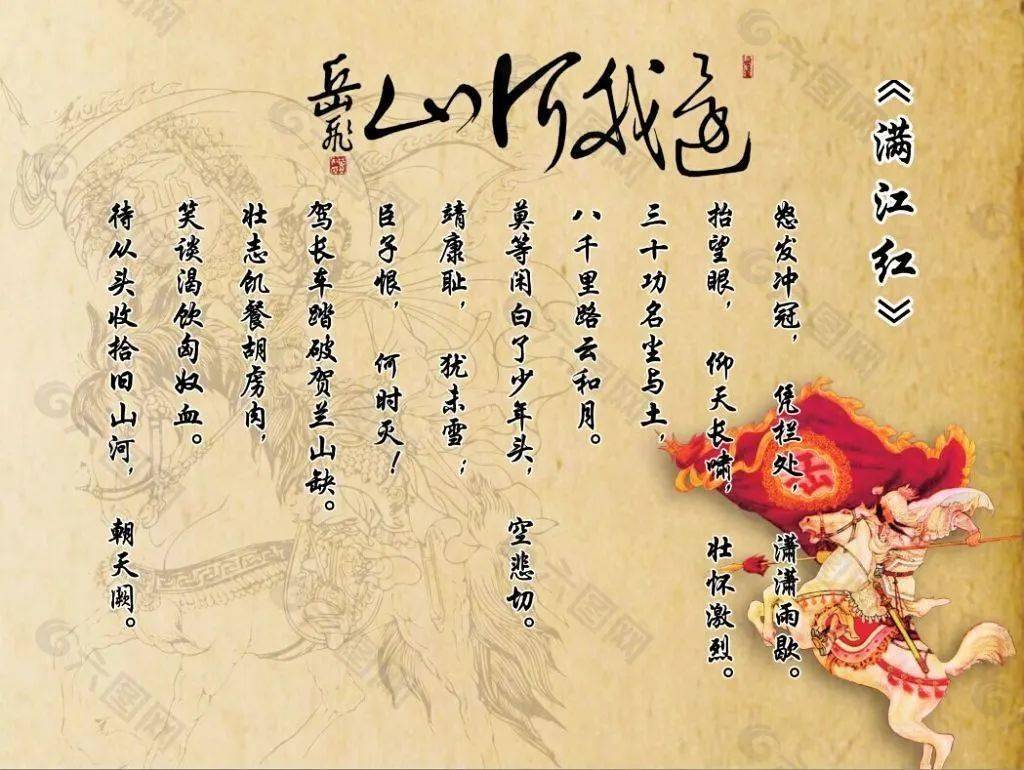 《满江红》
还我河山
岳飞
怒发冲冠，凭栏处，潇潇雨歇。
抬望眼，仰天长啸，壮怀激烈。
三十功名尘与土，
八千里路云和月。
莫等闲白了少年头，空悲切。
靖康耻，犹未雪；
臣子恨，何时灭！
驾长车踏破贺兰山缺。
壮志饥餐胡虏肉，
笑谈渴饮匈奴血。
待从头收拾旧山河，朝天阙。
岳
六图网